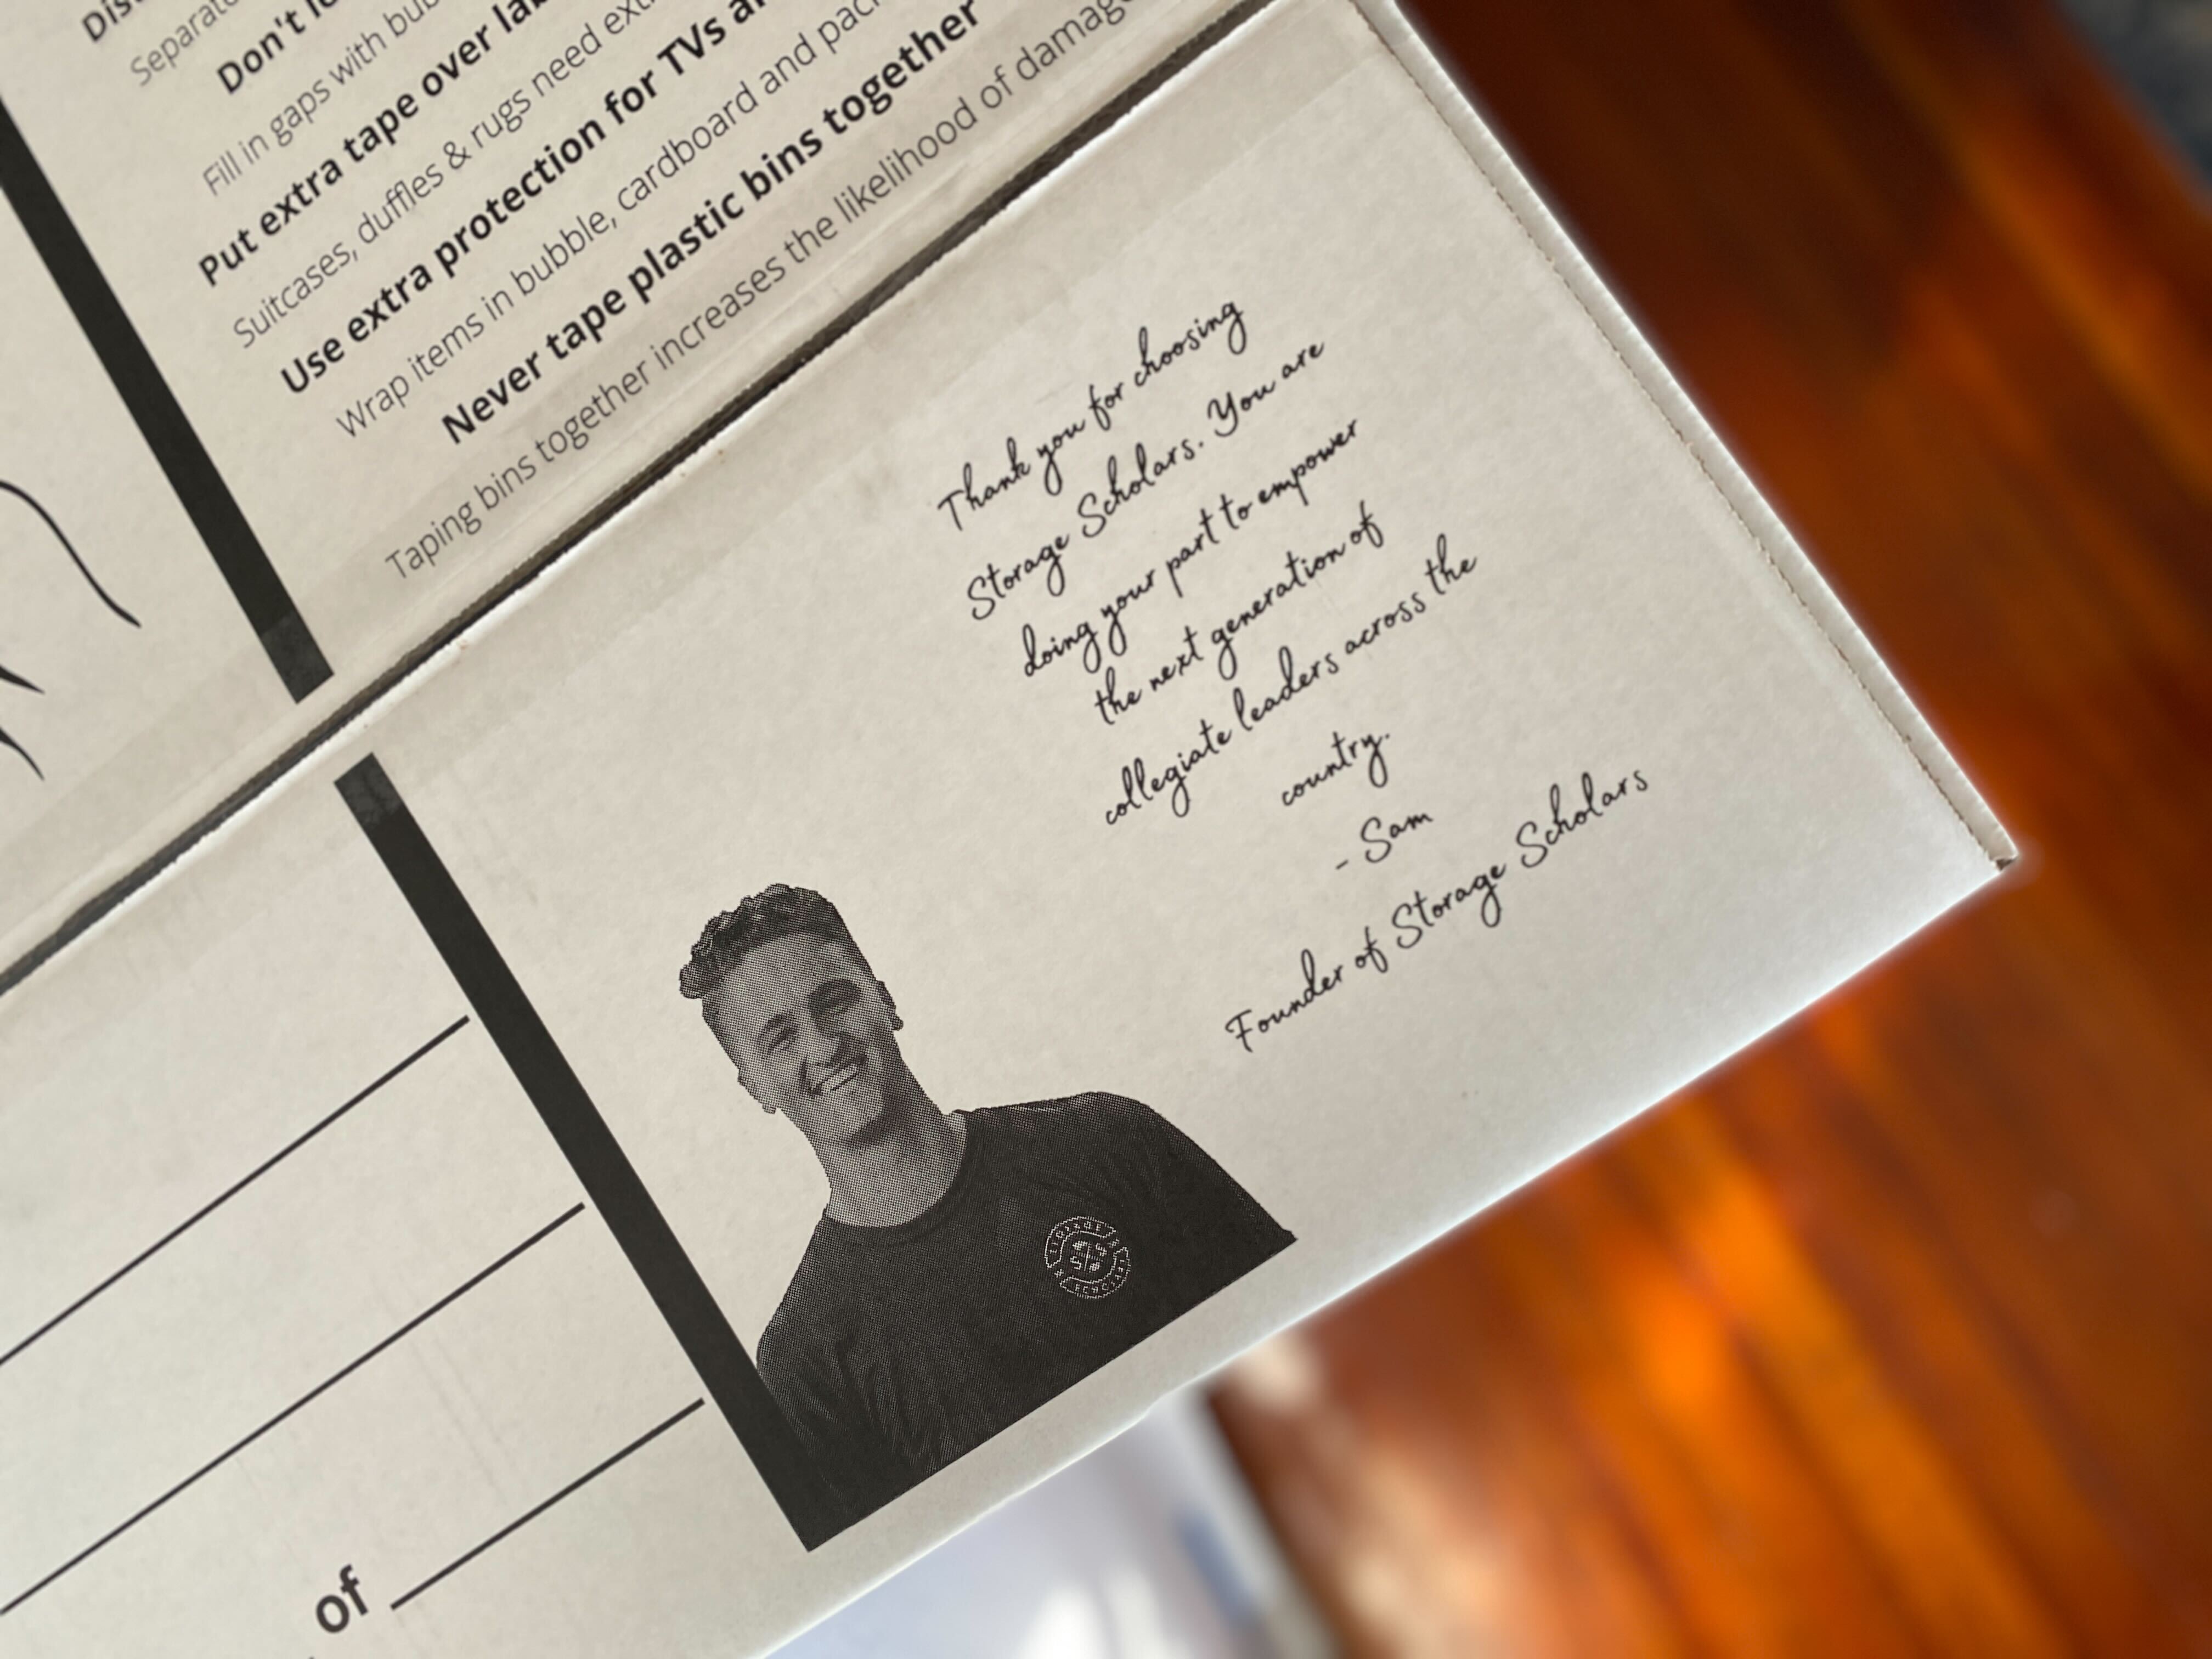 Separate
Don't
Fill in gaps with
Put extra tape over
Suitcases, duffles & rugs need
Use extra protection for TVs
Wrap items in bubble, cardboard and
Never tape plastic bins together
Taping bins together increases the likelihood of damage
Thank you for choosing
Storage Scholars. You are
doing your part to empower
the next generation of
collegiate leaders across the
country.
- Sam
Founder of Storage Scholars
STORAGE
SS
SCHOLARS
of